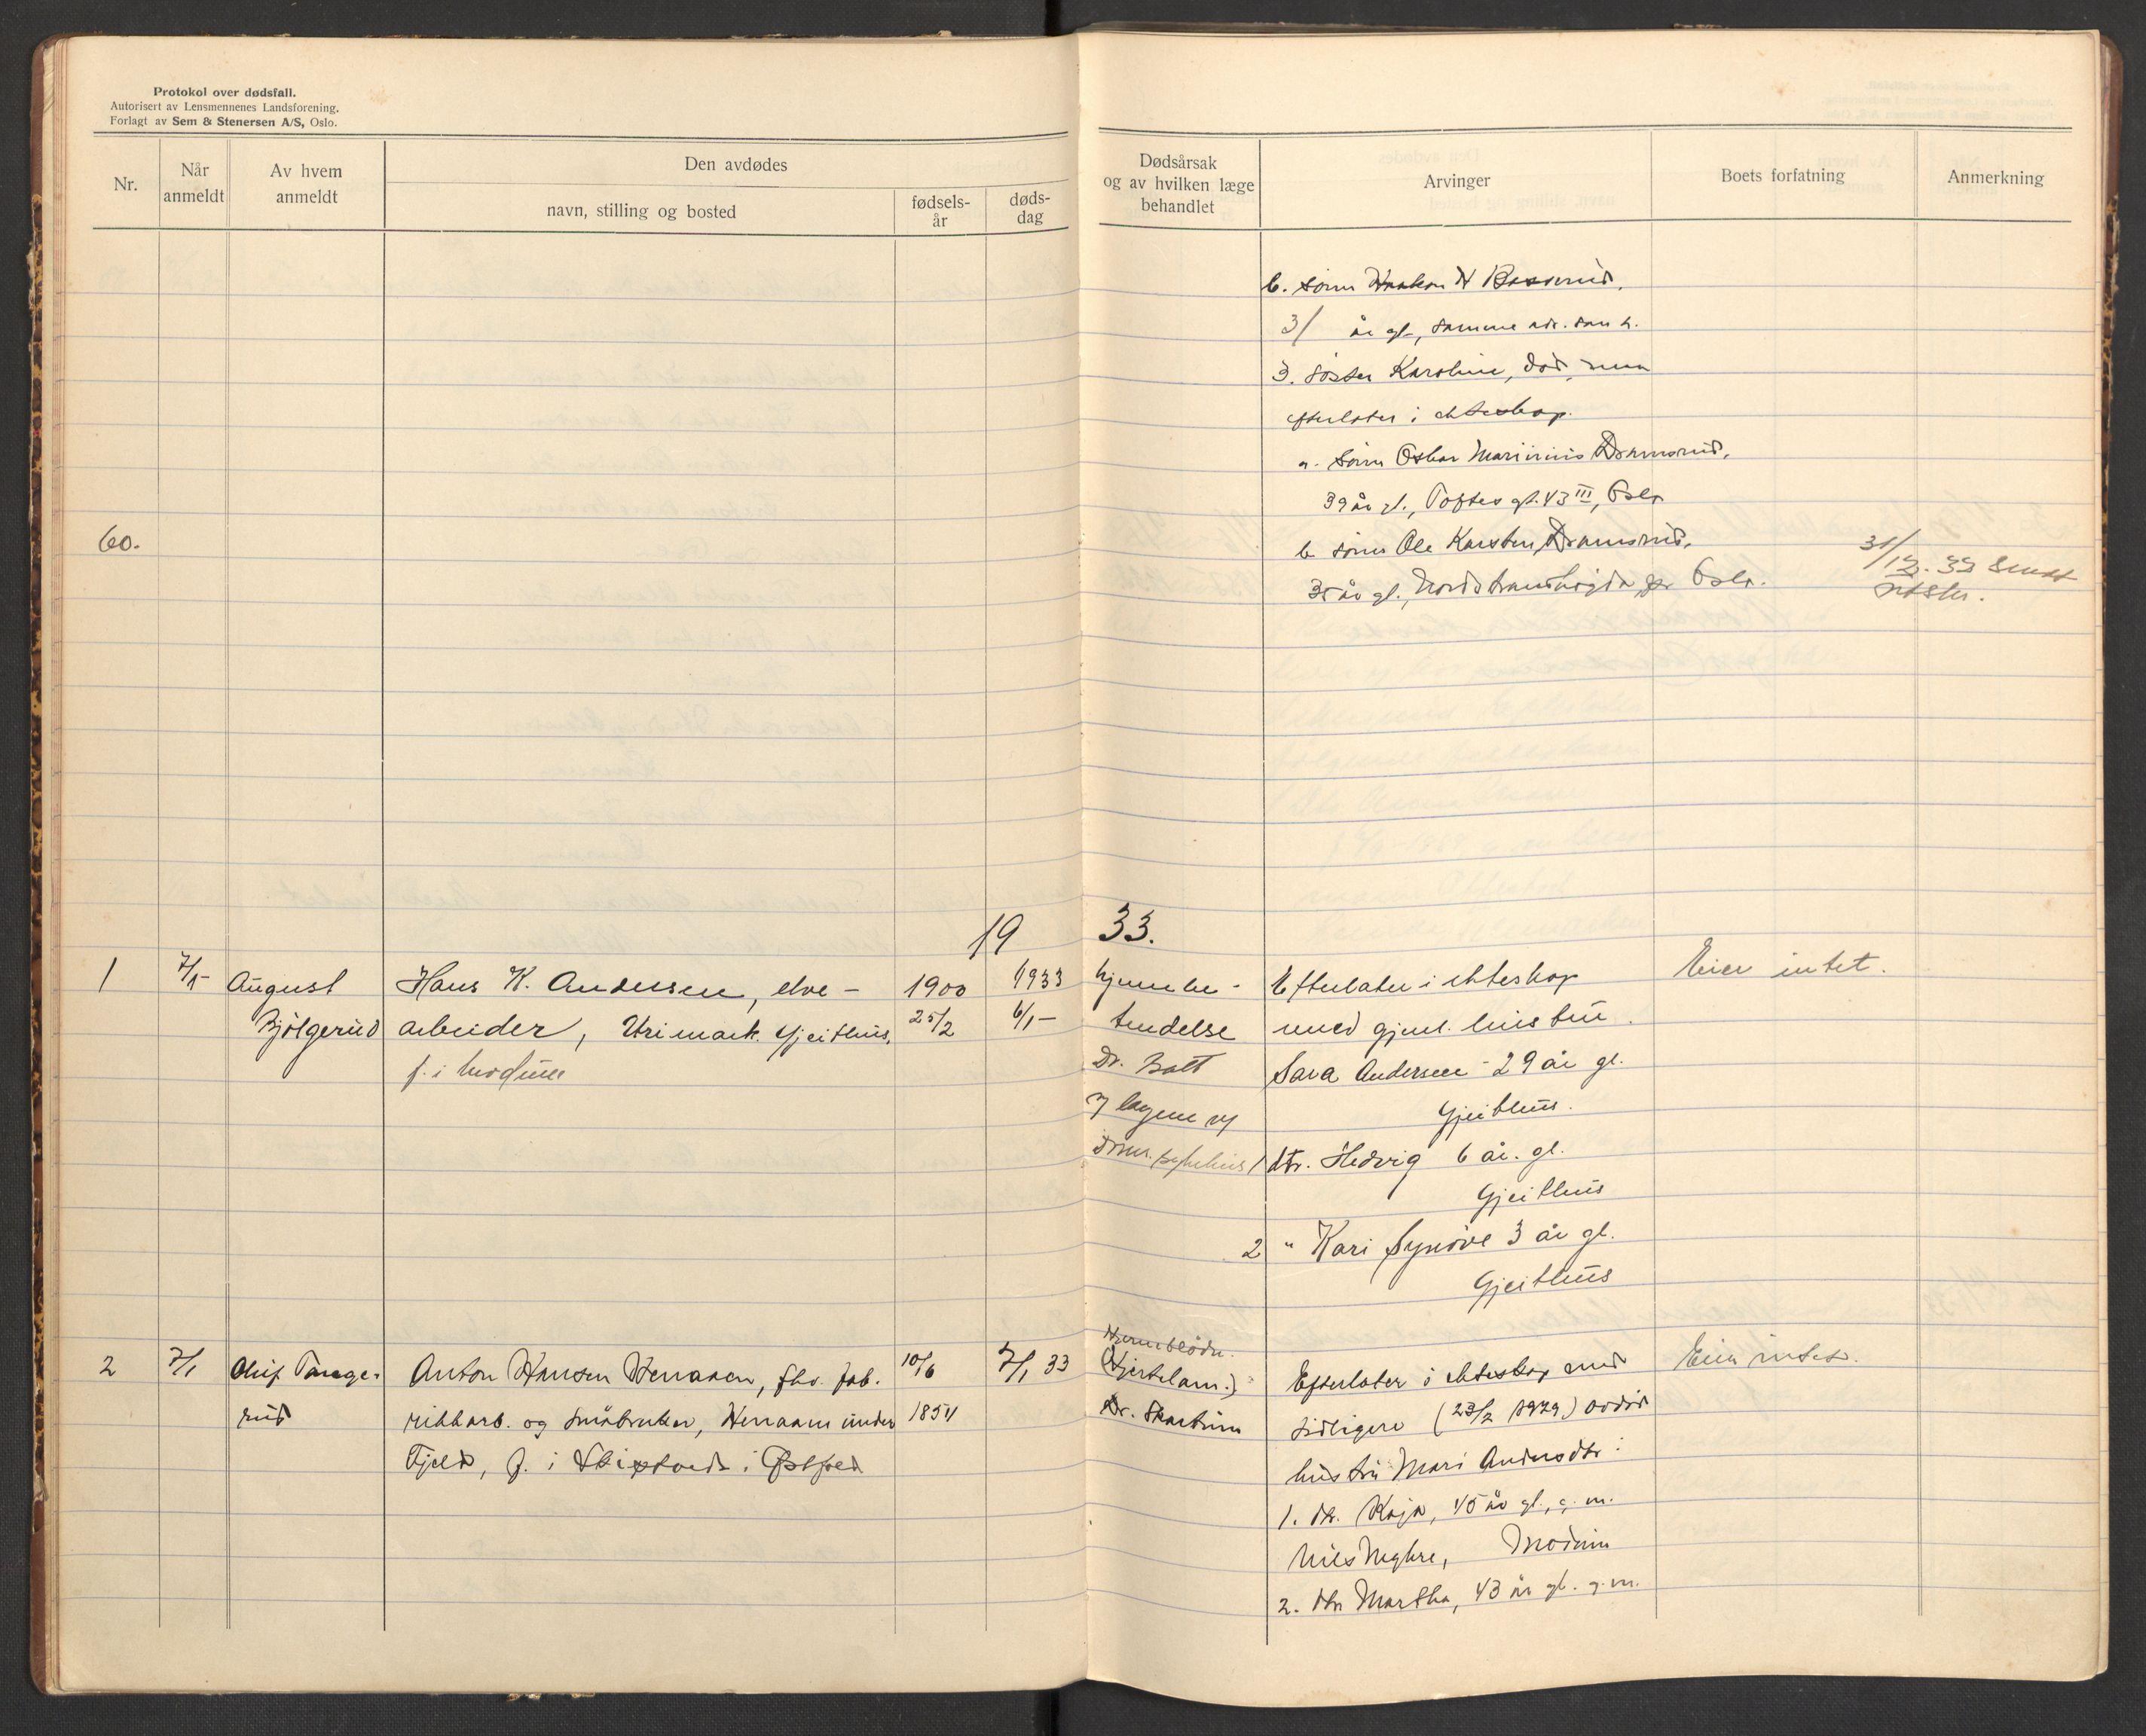 Protokol over dødsfall.
Autorisert av Lensmennenes Landsforening.
Forlagt av Sem & Stenersen A/S, Oslo.
Nr.
Når
anmeldt
Av hvem
anmeldt
Den avdødes
navn, stilling og bosted
fødsels-
år
døds-
dag
Dødsårsak
og av hvilken læge
behandlet
Arvinger
Boets forfatning
Anmerkning
b. sönn Haakon H
31 år gl., samme adr. som
3. söster Karoline, död, men
efterlater i ekteskap.
a. sönn Oskar Marinius Dramsrud,
39 år gl., Toftes gt. 43 III, Oslo
60.
b sönn Ole Karsten Dramsrud,
35 år gl., Nordstrandhögda pr Oslo.
31/12. 33 Sendt
19 33.
1
7/1-
August
Bjölgerud
Hans K. Andersen, elve-
arbeider, Gjeithus,
f. i Modum
1900
25/2
1933
6/1-
hjernebe-
tendelse
Dr. Bått
Efterlater i ekteskap
med gjenl. hustru
Sara Andersen - 29 år gl.
Gjeithus.
1 dtr. Hedvig 6 år. gl.
Gjeithus
2 " Kari Synöve 3 år gl.
Gjeithus
Eier intet.
2
7/1
Anton Hansen Henaaen, fhv. fab.
rikkarb. og småbruker, Henaaen under
Fjeld, f. i Skiptvedt i Østfold
10/6
1854
7/1 33
Hjerneblödn.
(Hjertelam.)
Dr. Skartum
Efterlater i ekteskap med
tidligere (23/2 1929) avdöd
hustru Mari Andersdtr:
1. dtr. Kaja, 45 år gl., g. m.
Nils Myhre, Modum
2. dtr Martha, 43 år gl. g. m.
Eier intet.